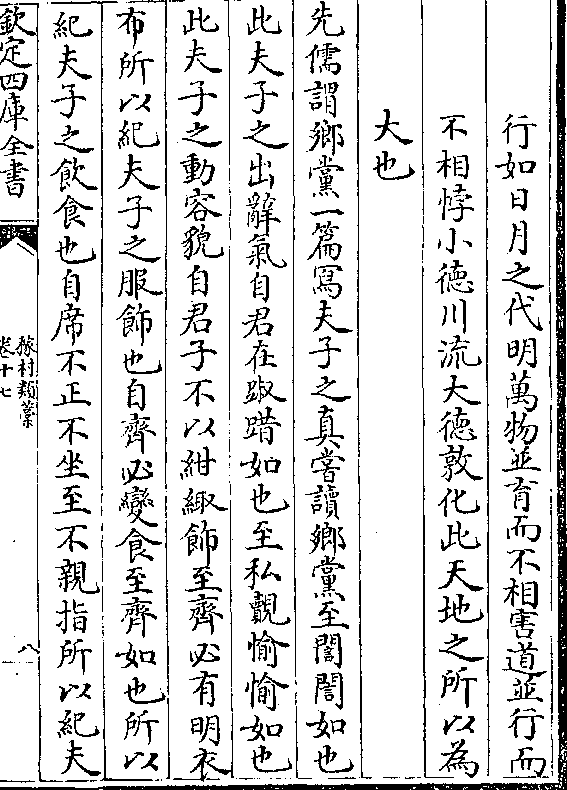 行如日月之代明萬物並育而不相害道並行而
不相悖小德川流大德敦化此天地之所以為
大也
先儒謂鄉黨一篇寫夫子之真嘗讀鄉黨至誾誾如也
此夫子之出辭氣自君在踧踖如也至私覿愉愉如也
此夫子之動容貌自君子不以紺緅飾至齊必有明衣
布所以紀夫子之服飾也自齊必變食至齊如也所以
紀夫子之飲食也自席不正不坐至不親指所以紀夫
欽定四庫全書
稼村類藁
卷十七
八